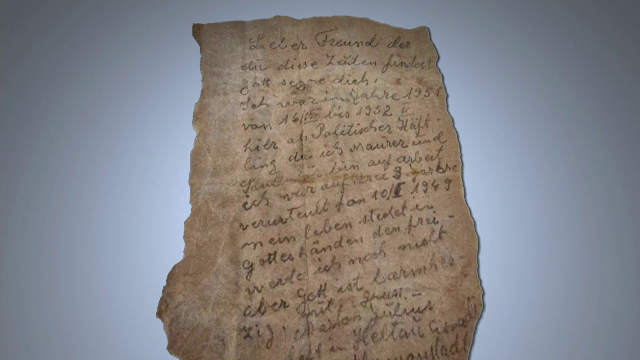 Lieber Freund der
du diese Zeilen findest!
Gott segne dich!
Ich war im Jahre 1951
von 16/III bis 1952 II
hier als Politischer Häft-
ling da ich Maurer und
bin auf arbeit
ich war auf drei 3 Jahre
verurteult von 10/I 1949
mein leben steht in
gotteshänden den frei-
werde ich noch nicht
aber Gott ist barmher-
zig,
Julius
in Heltau